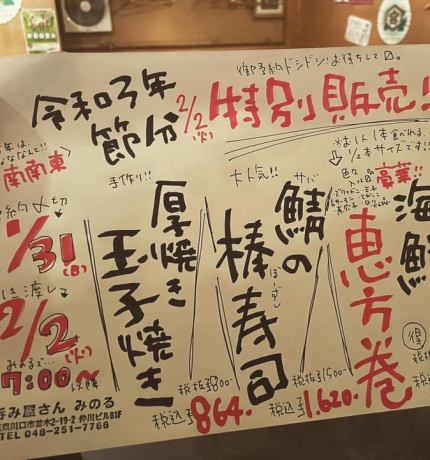 御予約ドシドシお待ちして〼。
令和3年
節分
2/2(火)
特別販売!!
南南東
手作り!!
大人気!!
サバ
女は1人1本食べれる
1/2本サイズです!!
豪華!!
海鮮
恵方巻
得
鯖の
棒寿司
ぼーずし
厚焼き
玉子焼き
〆切
1/31(日)
渡し
2/2(火)
みのるで…
7:00〜
以降
税抜き800-
税込み864.
税抜き1500-
税込み1.620.
呑み屋さん みのる
川口市並木2-19-2 仲川ビルB1F
TEL 048-251-7766